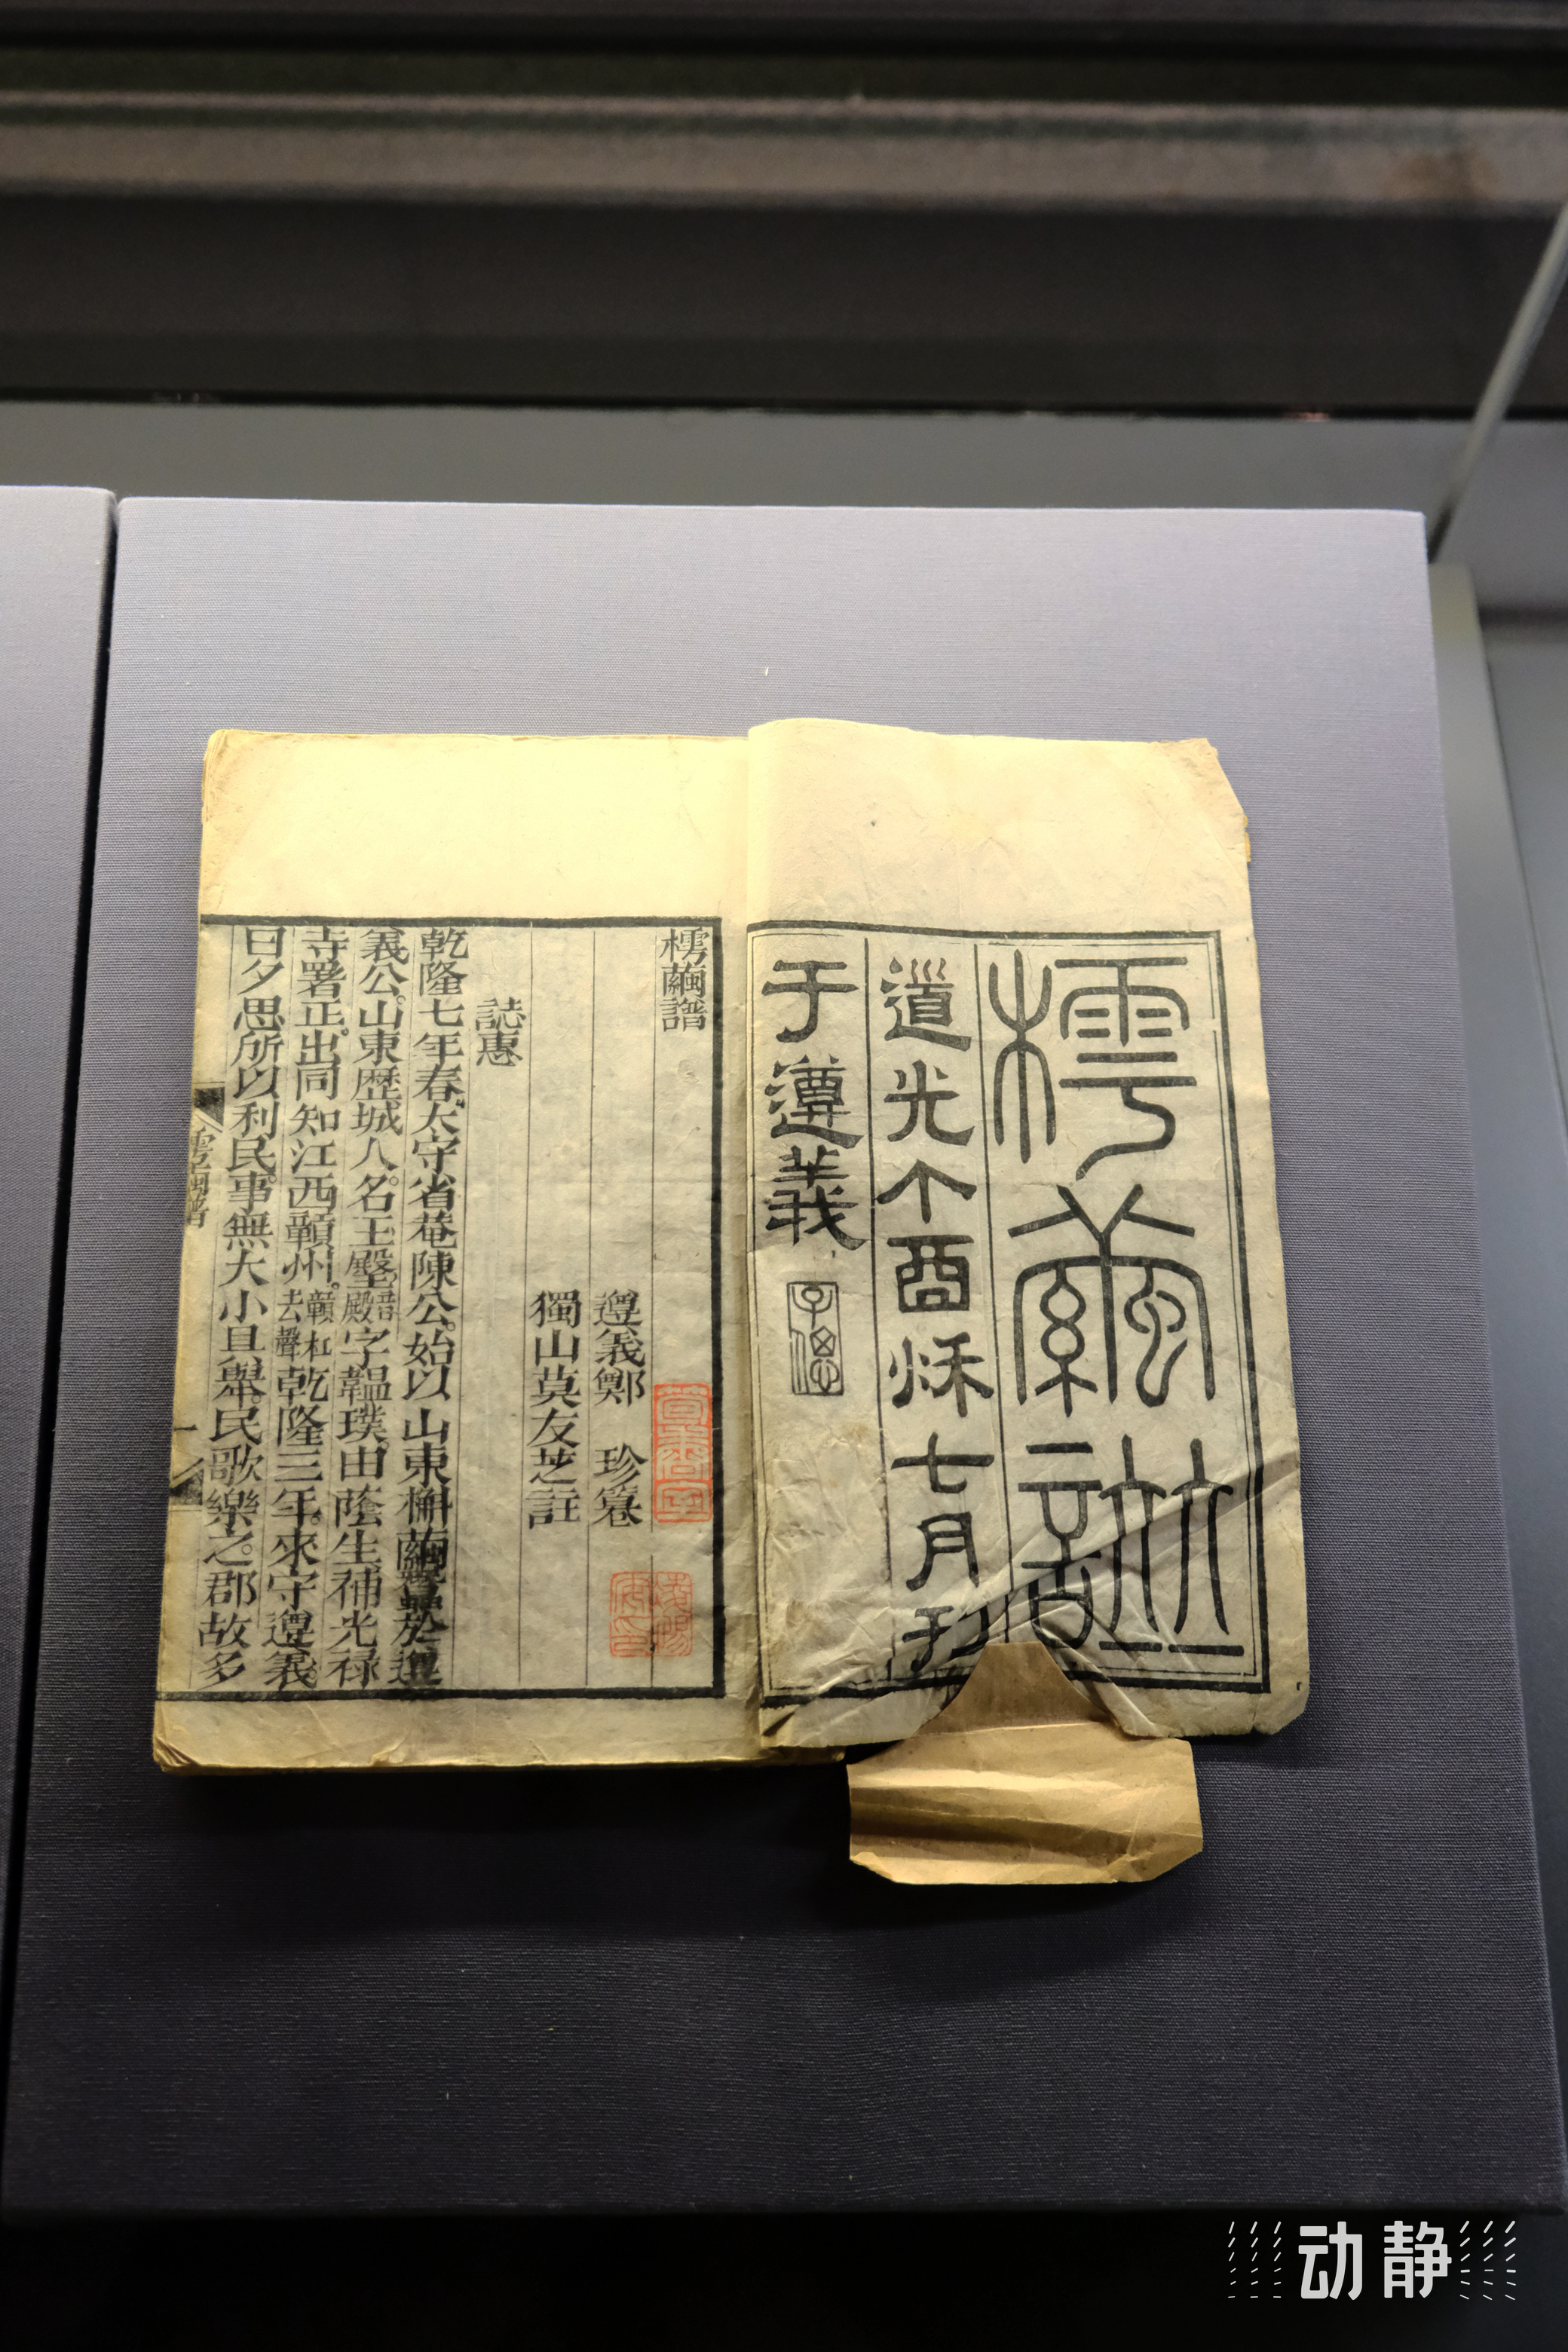 樗繭譜
道光丁酉秌七月刊
于遵義
子偲
樗繭譜
遵義鄭　珍篹
獨山莫友芝註
誌惠
乾隆七年春太守省菴陳公。始以山東槲繭蠶於遵
義公。山東歷城人。名王𡒉音殿字韞璞。由蔭生補光祿
寺署正。出同知江西贑州。贑杠去聲乾隆三年。來守遵義。
日夕思所以利民。事無大小具舉。民歌樂之。郡故多
樗繭譜
一
动静